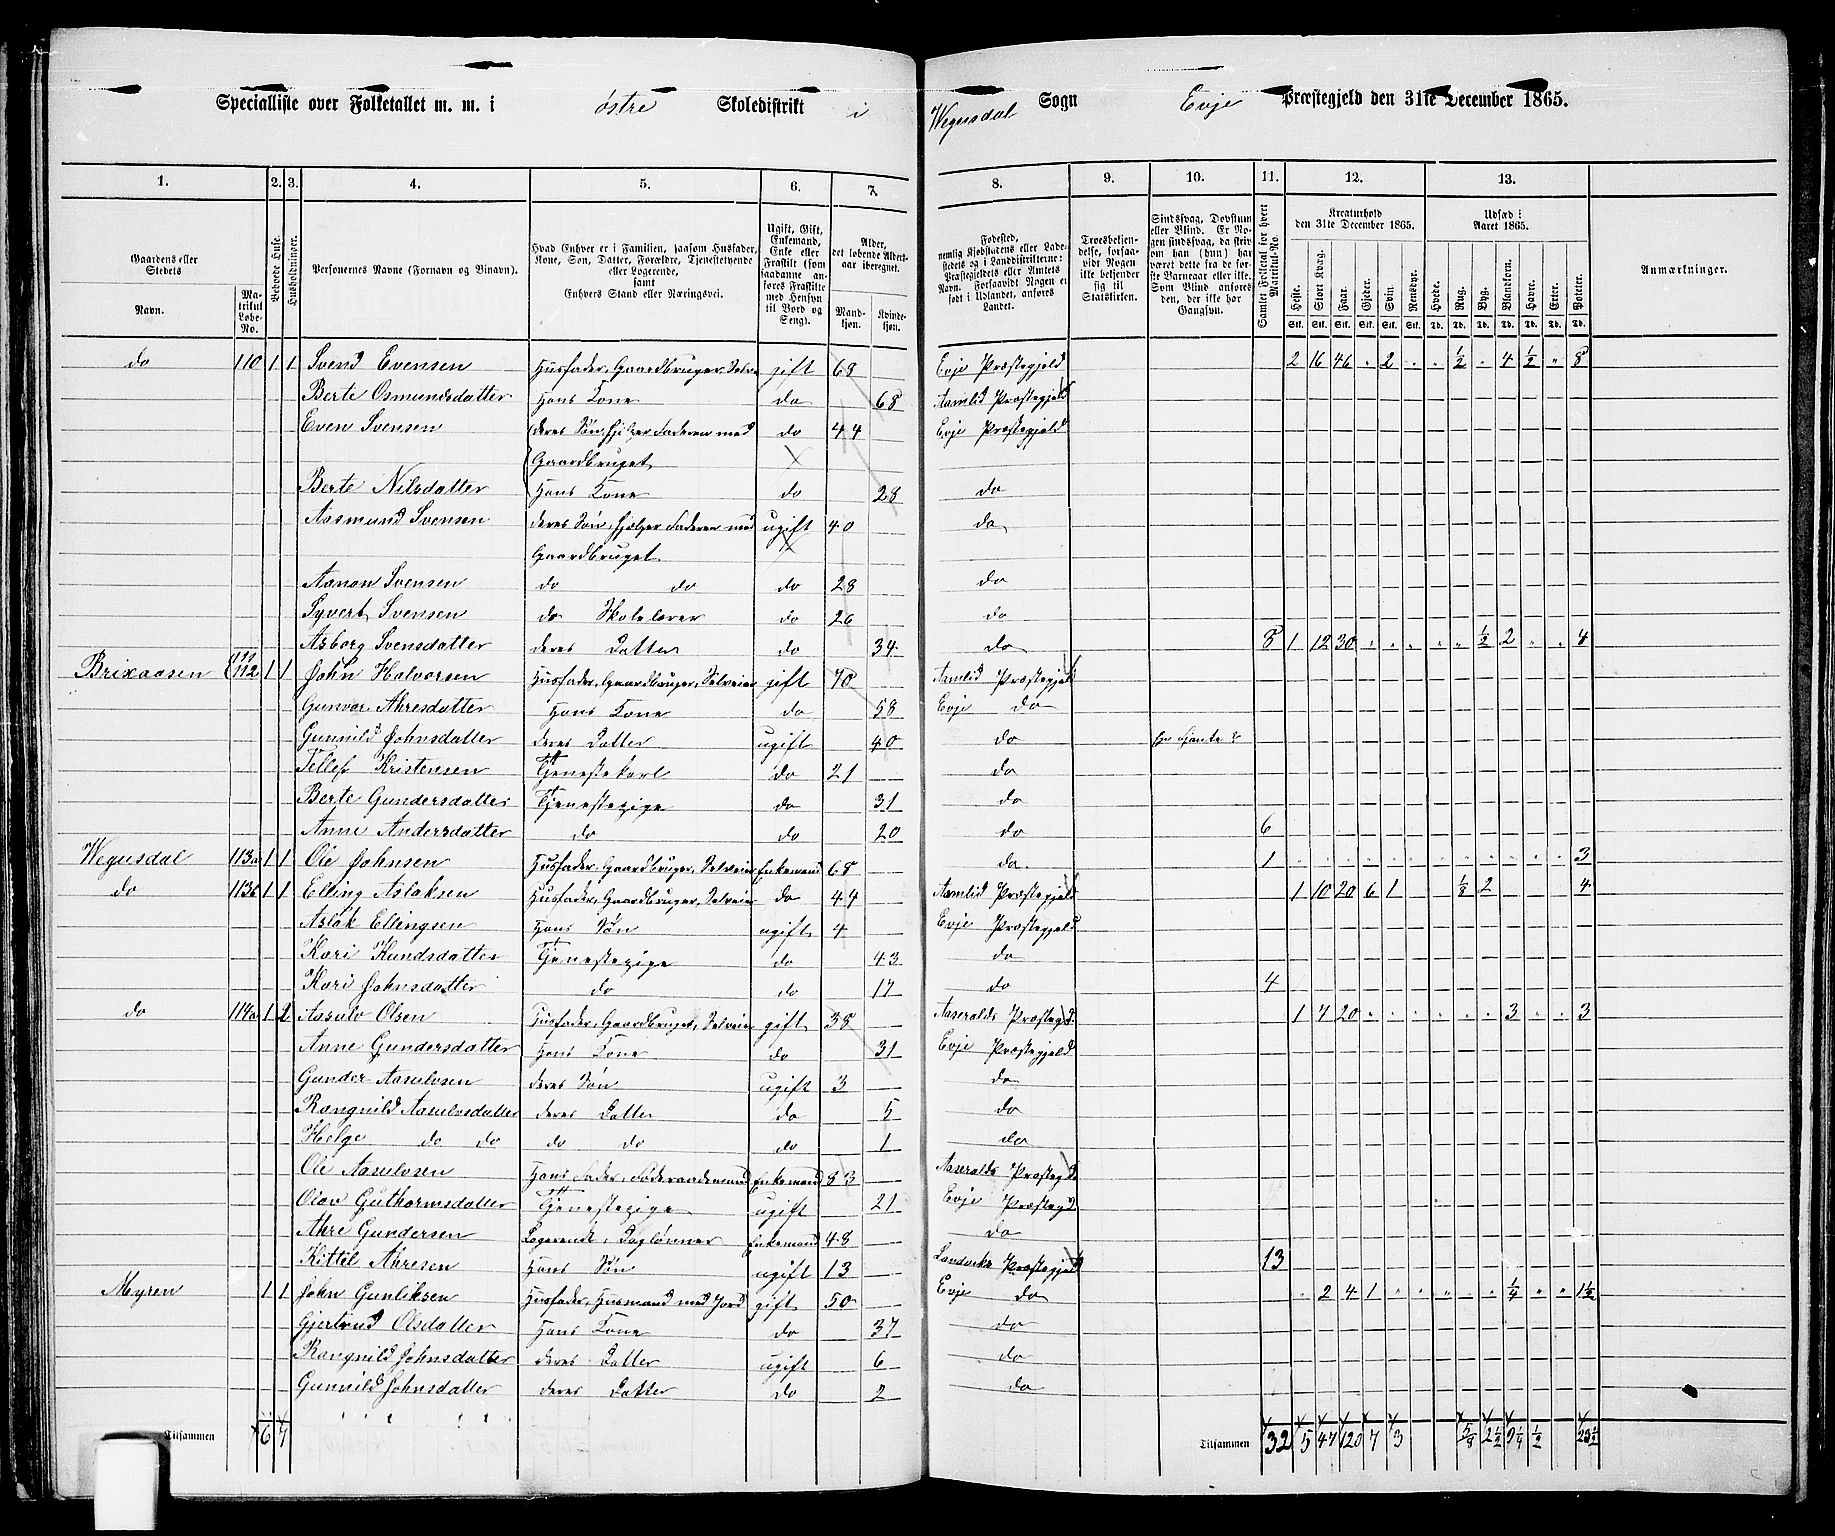 Specialliste over Folketallet m. m. i østre Skoledistrikt i Wegusdal Sogn Evje Præstegjeld den 31te December 1865.
1. 2. 3. 4. 5. 6. 7. 8. 9. 10. 11. 12. 13.
Gaardens eller Stedets
Navn. Matrikul Løbe-No.
Beboede Huse.
Husholdninger.
Personernes Navne (Fornavn og Binavn).
Hvad Enhver er i Familien, saasom Husfader, Kone, Søn, Datter, Forældre, Tjenestetyende eller Logerende, samt Enhvers Stand eller Næringsvei.
Ugift, Gift, Enkemand, Enke eller Fraskilt (som saadanne anføres Fraskilte med Hensyn til Bord og Seng).
Alder, det løbende Alders-aar iberegnet.
Mandkjøn. Kvindekjøn.
Fødested, nemlig Kjøbstadens eller Ladestedets og i Landdistrikterne: Præstegjeldets eller Amtets Navn. Forsaavidt Nogen er født i Udlandet, anføres Landet.
Troesbekjendelse, forsaavidt Nogen ikke bekjender sig til Statskirken.
Sindssvag, Døvstum eller Blind. Er Nogen sindssvag, da skrives han (hun) har været dette fra de første Barneaar eller ikke. Som Blind anføres den, der ikke har Gangsyn.
Samlet Folketal for hvert Matrikul-No.
Kreaturhold den 31te December 1865.
Heste. Stort Kvæg. Faar. Gjeder. Svin. Rensdyr.
Udsæd i Aaret 1865.
Hvede. Rug. Byg. Blandkorn. Havre. Erter. Poteter.
Anmærkninger.
do 110 1 1 Svend Evensen Husfader, Gaardbruger, Selve gift 68 Evje Præstegjeld 2 16 46 " 2 " " 1/2 " 4 1/2 " 8
Berte Osmundsdatter Hans Kone do 68 Aamlid Præstegjeld
Even Svensen deres Søn, hjelper Faderen med do 44 Evje Præstegjeld
Gaardbruget
Berte Nilsdatter Hans Kone do 28 do
Aasmund Svensen deres Søn, hjelper Faderen med ugift 40 do
Gaardbruget
Aanon Svensen do do do 28 do
Syvert Svensen do Skolelærer do 26 do
Asborg Svensdatter deres Datter do 34 do 8 1 12 30 " " " " " 1/2 2 " " 4
Brixaasen 111 112 1 1 John Halvorsen Husfader, Gaardbruger, Selveier gift 70 Aamlid Præstegjeld
Gunvor Ahresdatter Hans Kone do 58 Evje do
Gunnild Johnsdatter deres Datter ugift 40 do
Tellef Kristensen Tjenestekarl do 21 do
Berte Gundersdatter Tjenestepige do 31 do
Anne Andersdatter do do 20 do 6
Wegusdal 113a 1 1 Ole Johnsen Husfader, Gaardbruger, Selveier Enkemand 68 do 1 " " " " " " " " " " " " 3
do 113b 1 1 Elling Aslaksen Husfader, Gaardbruger, Selveier do 44 Aamlid Præstegjeld 1 10 20 6 1 1/8 2 4
Aslak Ellingsen Hans Søn ugift 4 Evje Præstegjeld
Kari Knudsdatter Tjenestepige do 43 do
Kari Johnsdatter do do 17 do 4
do 114a 1 2 Aasulv Olsen Husfader, Gaardbruger, Selveier gift 38 Aaseralds Præstegjd. 1 7 20 " " " " " " 3 " " 3
Anne Gundersdatter Hans Kone do 31 Evje Præstegjeld
Gunder Aasulvsen deres Søn ugift 3 do
Rangnild Aasulvsdatter deres Datter do 5 do
Helge do do do do do 1 do
Ole Aasulvsen Hans Fader, Føderaadsmand Enkemand 83 Aaseralds Præstegjd
Olav Guthormsdatter Tjenestepige ugift 21 Evje Præstegjd.
Ahre Gundersen Logerende, Daglønner Enkemand 48 do
Kittil Ahresen Hans Søn ugift 13 Landviks Præstegjeld 13
Myren 1 1 John Gunliksen Husfader, Husmand med Jord gift 50 Evje do " 2 4 1 " " " " " 1/4 " " 1 1/2
Gjertrud Olsdatter Hans Kone do 37 do
Rangnild Johnsdatter deres Datter ugift 6 do
Gunnild Johnsdatter deres Datter do 2 do
Tilsammen 6 7 Tilsammen 32 5 47 120 7 3 5/8 2 1/2 9 1/4 1/2 23 1/2